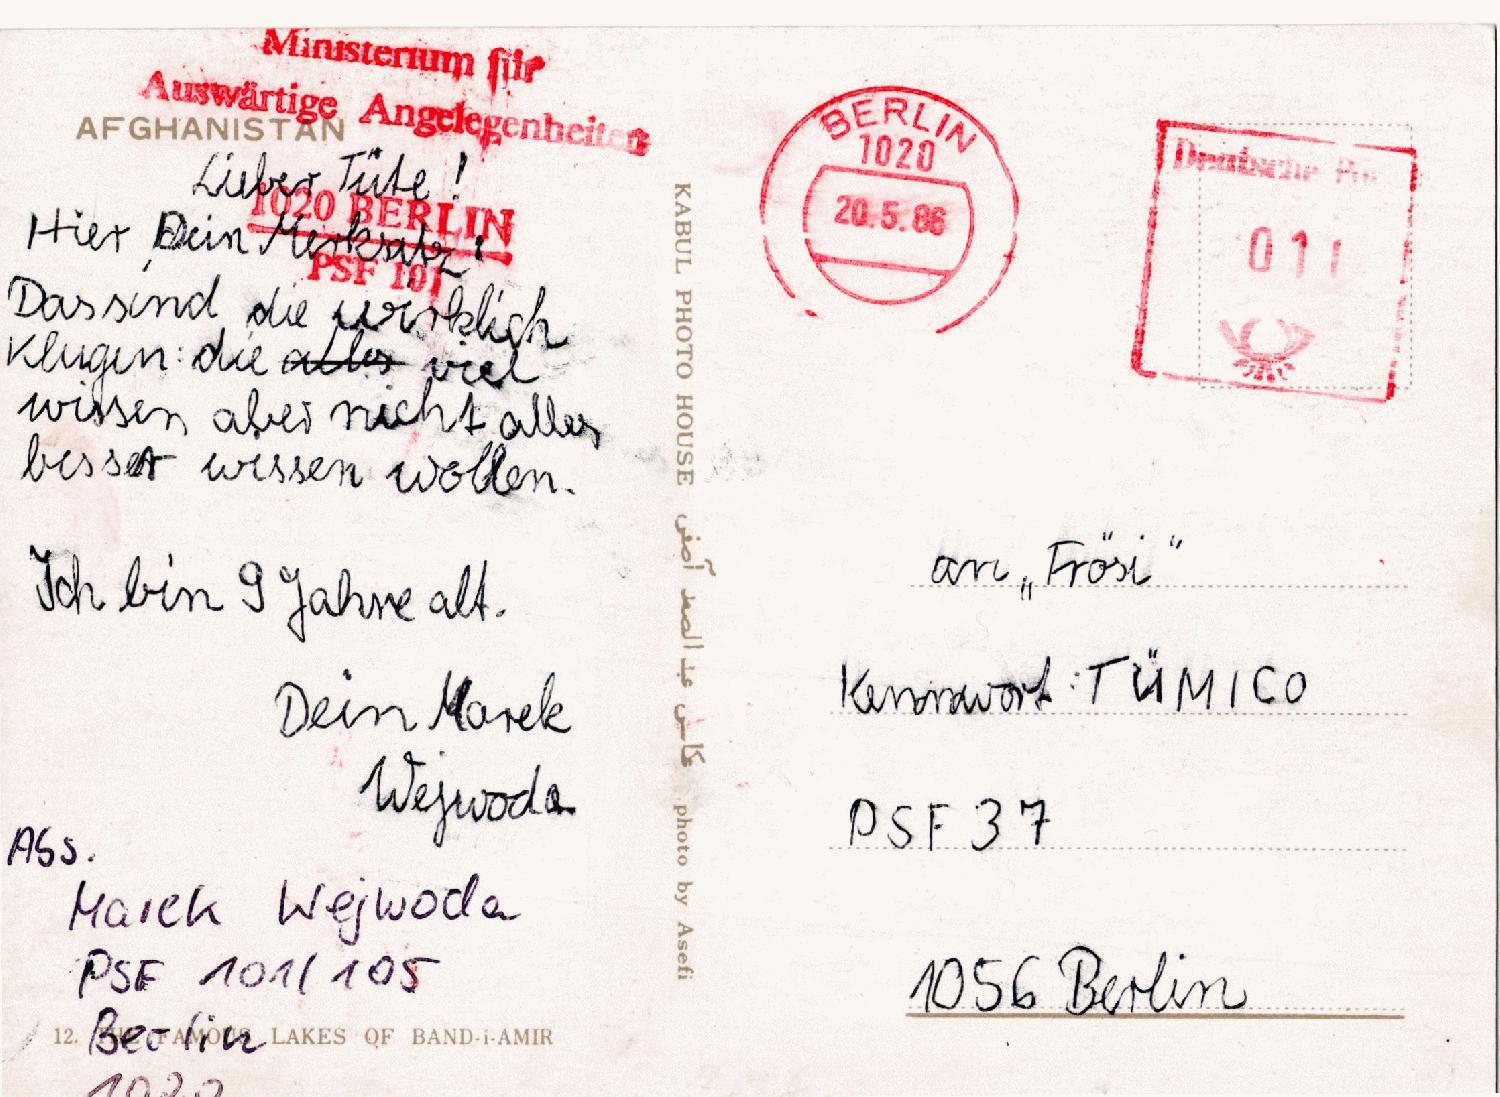 Ministerium für
Auswärtige Angelegenheiten
AFGHANISTAN
1020 BERLIN
PSF 101
Lieber Tüte!
Hier Dein Merksatz!
Das sind die wirklich
Klugen: die alles viel
wissen aber nicht alles
besser wissen wollen.
Ich bin 9 Jahre alt.
Dein Marek
Wejwoda
Abs.
Marek Wejwoda
PSF 101/105
Berlin
1020
12. THE FAMOUS LAKES OF BAND-i-AMIR
KABUL PHOTO HOUSE عکاسی عبدالصمد آصفی photo by Asefi
BERLIN
1020
20.5.86
Deutsche Post
011
an „Frösi“
Kennwort: TÜMICO
PSF 37
1056 Berlin